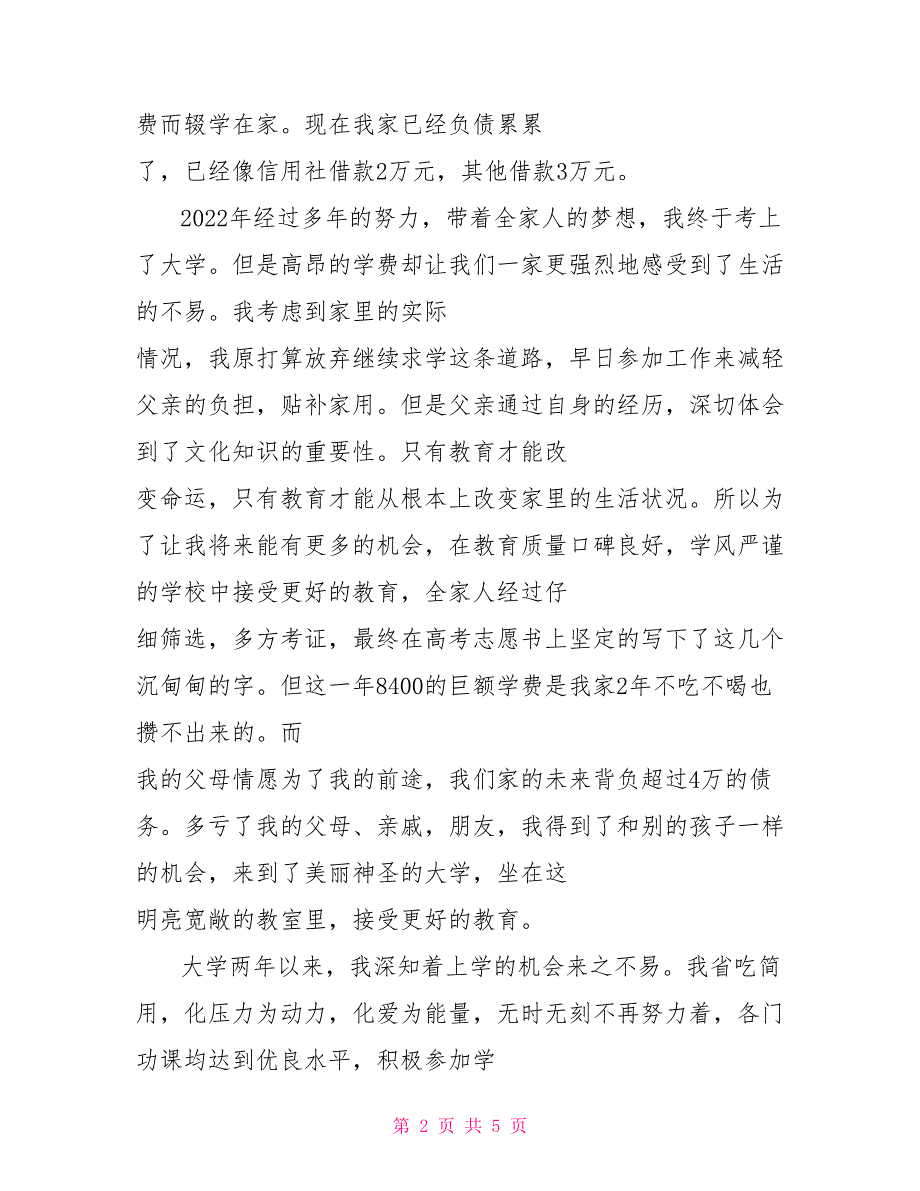 费而辍学在家。现在我家已经负债累累
了，已经像信用社借款2万元，其他借款3万元。
2022年经过多年的努力，带着全家人的梦想，我终于考上
了大学。但是高昂的学费却让我们一家更强烈地感受到了生活
的不易。我考虑到家里的实际
情况，我原打算放弃继续求学这条道路，早日参加工作来减轻
父亲的负担，贴补家用。但是父亲通过自身的经历，深切体会
到了文化知识的重要性。只有教育才能改
变命运，只有教育才能从根本上改变家里的生活状况。所以为
了让我将来能有更多的机会，在教育质量口碑良好，学风严谨
的学校中接受更好的教育，全家人经过仔
细筛选，多方考证，最终在高考志愿书上坚定的写下了这几个
沉甸甸的字。但这一年8400的巨额学费是我家2年不吃不喝也
攒不出来的。而
我的父母情愿为了我的前途，我们家的未来背负超过4万的债
务。多亏了我的父母、亲戚，朋友，我得到了和别的孩子一样
的机会，来到了美丽神圣的大学，坐在这
明亮宽敞的教室里，接受更好的教育。
大学两年以来，我深知着上学的机会来之不易。我省吃简
用，化压力为动力，化爱为能量，无时无刻不再努力着，各门
功课均达到优良水平，积极参加学
第 2 页 共 5 页